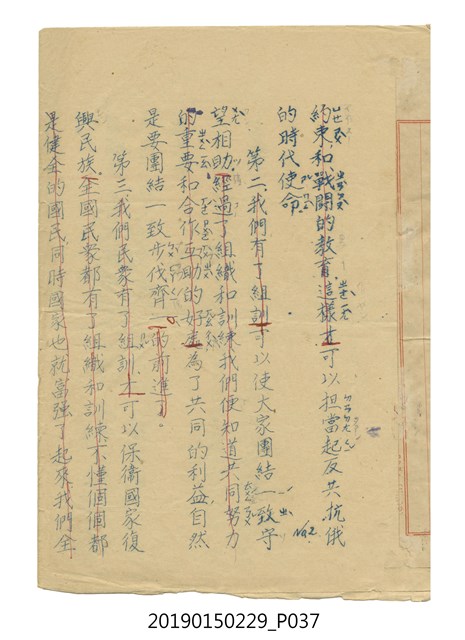 約束和戰鬪的教育這樣才可以担當起反共抗俄
的時代使命
第二我們有了組訓可以使大家團結一致守
望相助經過了組織和訓練我們便知道共同努力
的重要和合作互助的好處為了共同的利益自然
是要團結一致步伐齊一的前進了。
第三我們民衆有了組訓才可以保衛國家復
興民族全國民衆都有了組織和訓練不僅個個都
是健全的國民同時國家也就富強了起來我們全
No2
20190150229_P037